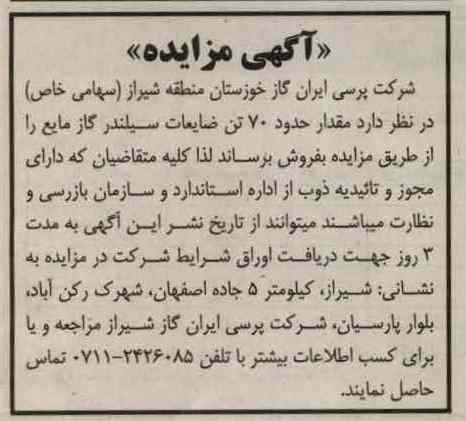 «آگهی مزایده»
شرکت پرسی ایران گاز خوزستان منطقه شیراز (سهامی خاص)
در نظر دارد مقدار حدود ۷۰ تن ضایعات سیلندر گاز مایع را
از طریق مزایده بفروش برساند لذا کلیه متقاضیان که دارای
مجوز و تائیدیه ذوب از اداره استاندارد و سازمان بازرسی و
نظارت میباشند میتوانند از تاریخ نشر این آگهی به مدت
۳ روز جهت دریافت اوراق شرایط شرکت در مزایده به
نشانی: شیراز، کیلومتر ۵ جاده اصفهان، شهرک رکن آباد،
بلوار پارسیان، شرکت پرسی ایران گاز شیراز مراجعه و یا
برای کسب اطلاعات بیشتر با تلفن ۲۴۲۶۰۸۵-۰۷۱۱ تماس
حاصل نمایند.